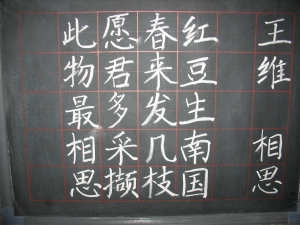 王维 相思
红豆生南国
春来发几枝
愿君多采撷
此物最相思